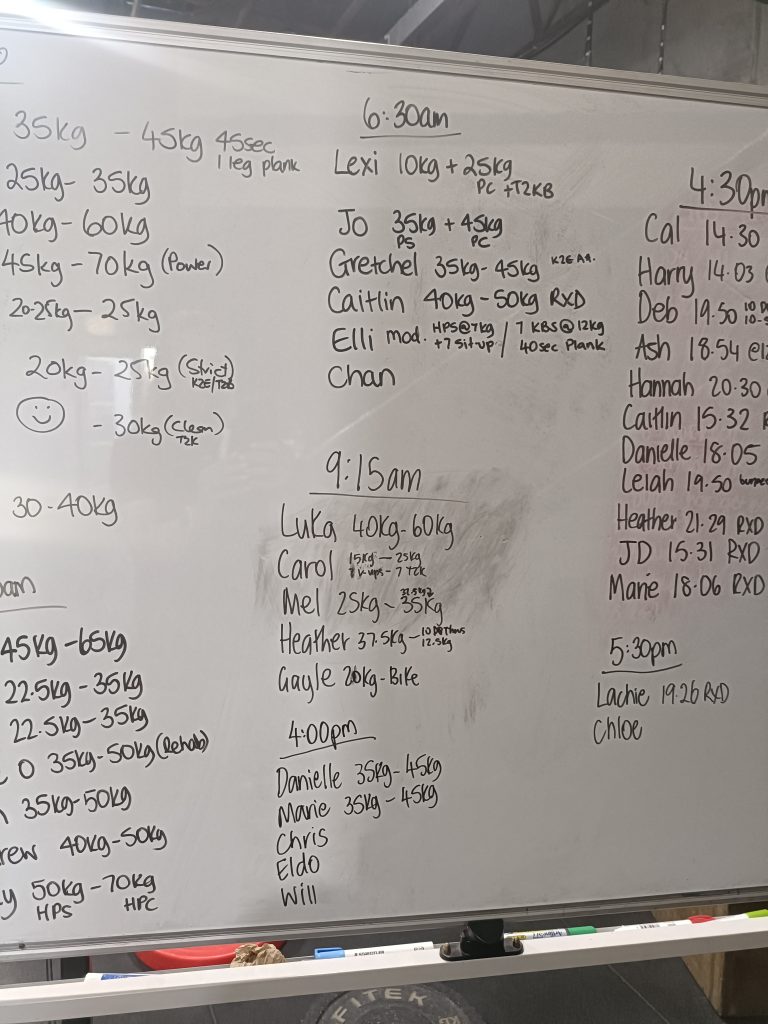 35kg - 45kg 45sec
1 leg plank
25kg- 35kg
40kg- 60kg
45kg - 70kg (Power)
20-25kg - 25kg
20kg - 25kg (Strict)
K2E/T2B
- 30kg (Clean)
T2K
30-40kg
am
45kg - 65kg
22.5kg - 35kg
22.5kg - 35kg
O 35kg-50kg (Rehab)
35kg-50kg
rew 40kg-50kg
y 50kg - 70kg
HPS HPC
6:30am
Lexi 10kg + 25kg
PC + T2KB
Jo 35kg + 45kg
PS PC
Gretchel 35kg- 45kg
Caitlin 40kg - 50kg RXD
Elli mod. HPS@7kg / 7 KBS@12kg
+7 sit-up 40sec Plank
Chan
9:15am
Luka 40kg- 60kg
Carol 15kg - 25kg
7 T2K
Mel 25kg - 35kg
Heather 37.5kg -
12.5kg
Gayle 20kg - Bike
4:00pm
Danielle 35kg - 45kg
Marie 35kg - 45kg
Chris
Eldo
Will
4:30pm
Cal 14.30
Harry 14.03
Deb 19.50
Ash 18.54
Hannah 20.30
Caitlin 15.32
Danielle 18.05
Leiah 19.50
Heather 21.29 RXD
JD 15.31 RXD
Marie 18.06 RXD
5:30pm
Lachie 19.26 RXD
Chloe
FITEK